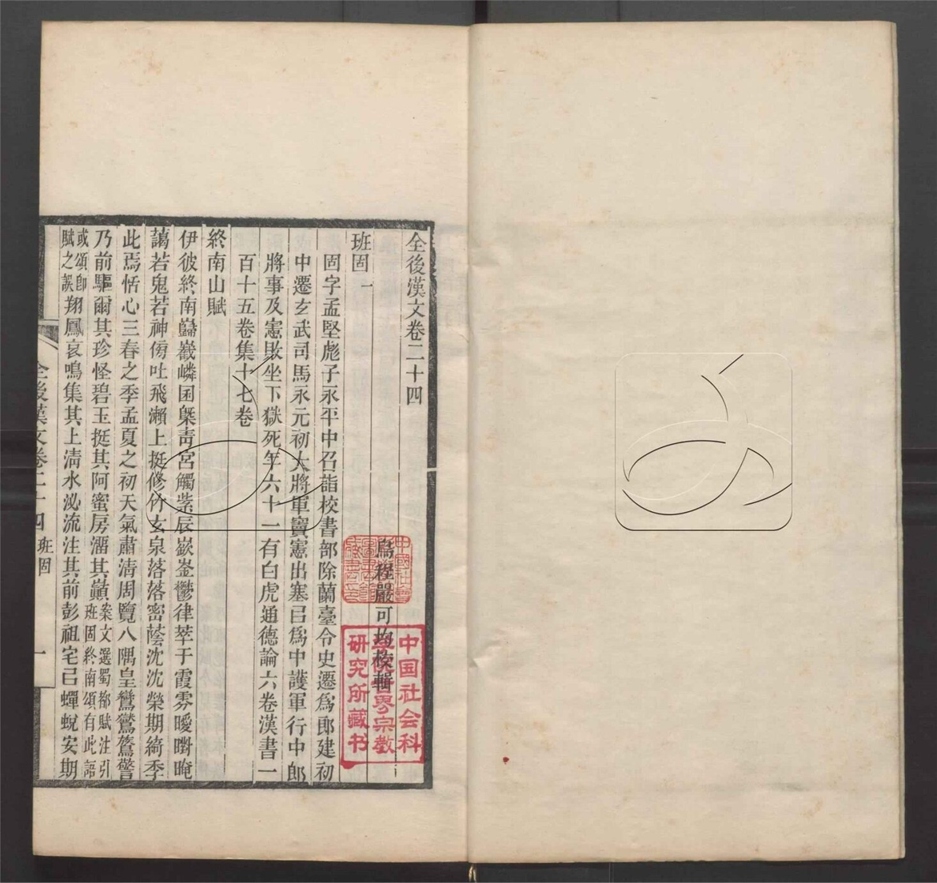 全後漢文卷二十四
烏程嚴可均校輯
班固一
固字孟堅彪子永平中召詣校書部除蘭臺令史遷爲郎建初
中遷玄武司馬永元初大將軍竇憲出塞㠯爲中護軍行中郎
將事及憲敗坐下獄死年六十一有白虎通德論六卷漢書一
百十五卷集十七卷
終南山賦
伊彼終南巋嶻嶙囷槩靑宮觸紫辰嶔崟鬱律萃于霞雰曖㬣晻
藹若鬼若神傍吐飛瀨上挺修竹玄泉落落密蔭沈沈榮期綺季
此焉恬心三春之季孟夏之初天氣肅清周覽八隅皇鸞鷟鷟警
乃前驅爾其珍怪碧玉挺其阿蜜房溜其巔案文選蜀都賦注引班固終南頌有此語
或頌卽賦之誤翔鳳哀鳴集其上清水泌流注其前彭祖宅㠯蟬蛻安期
全後漢文卷二十四 班固 一
中国社会科
學院世界宗教
研究所藏书